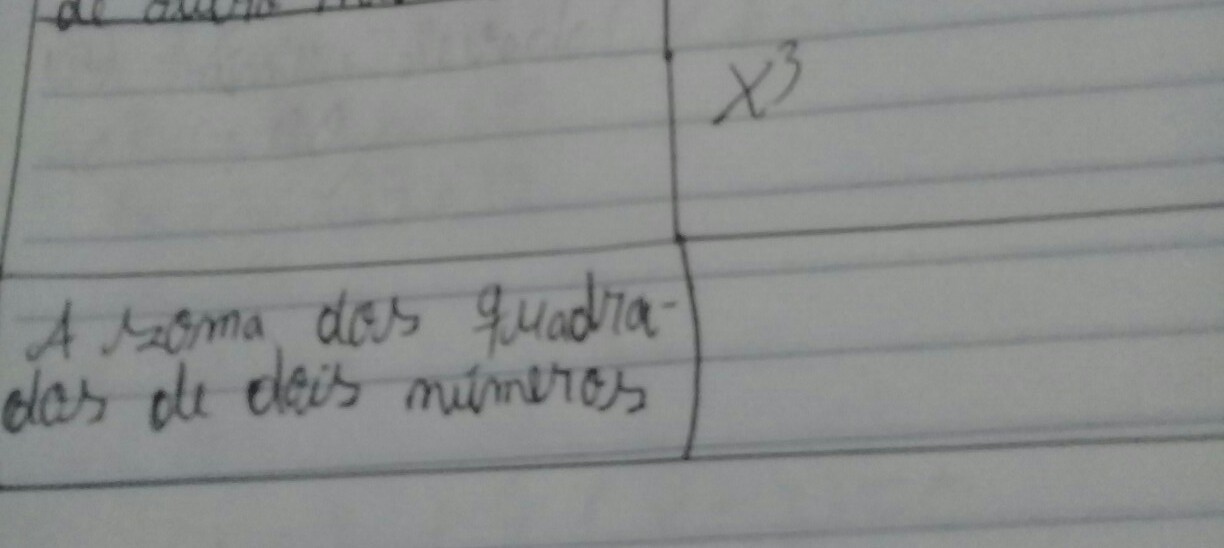 de
x³
A soma dos quadra-
dos de dois números